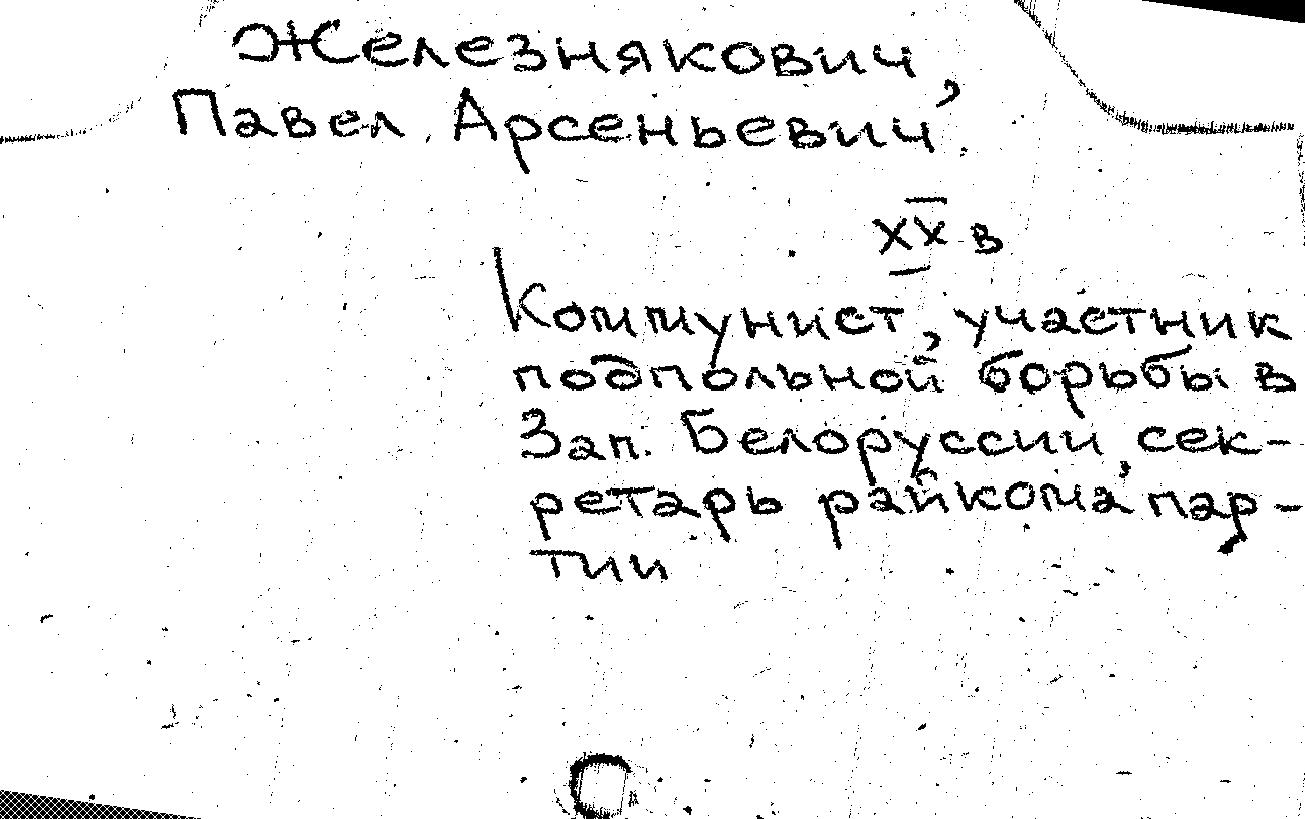 Железнякович,
Павел Арсеньевич
XX в
Коммунист, участник
подпольной борьбы в
Зап. Белоруссии, сек-
ретарь райкома пар-
тии